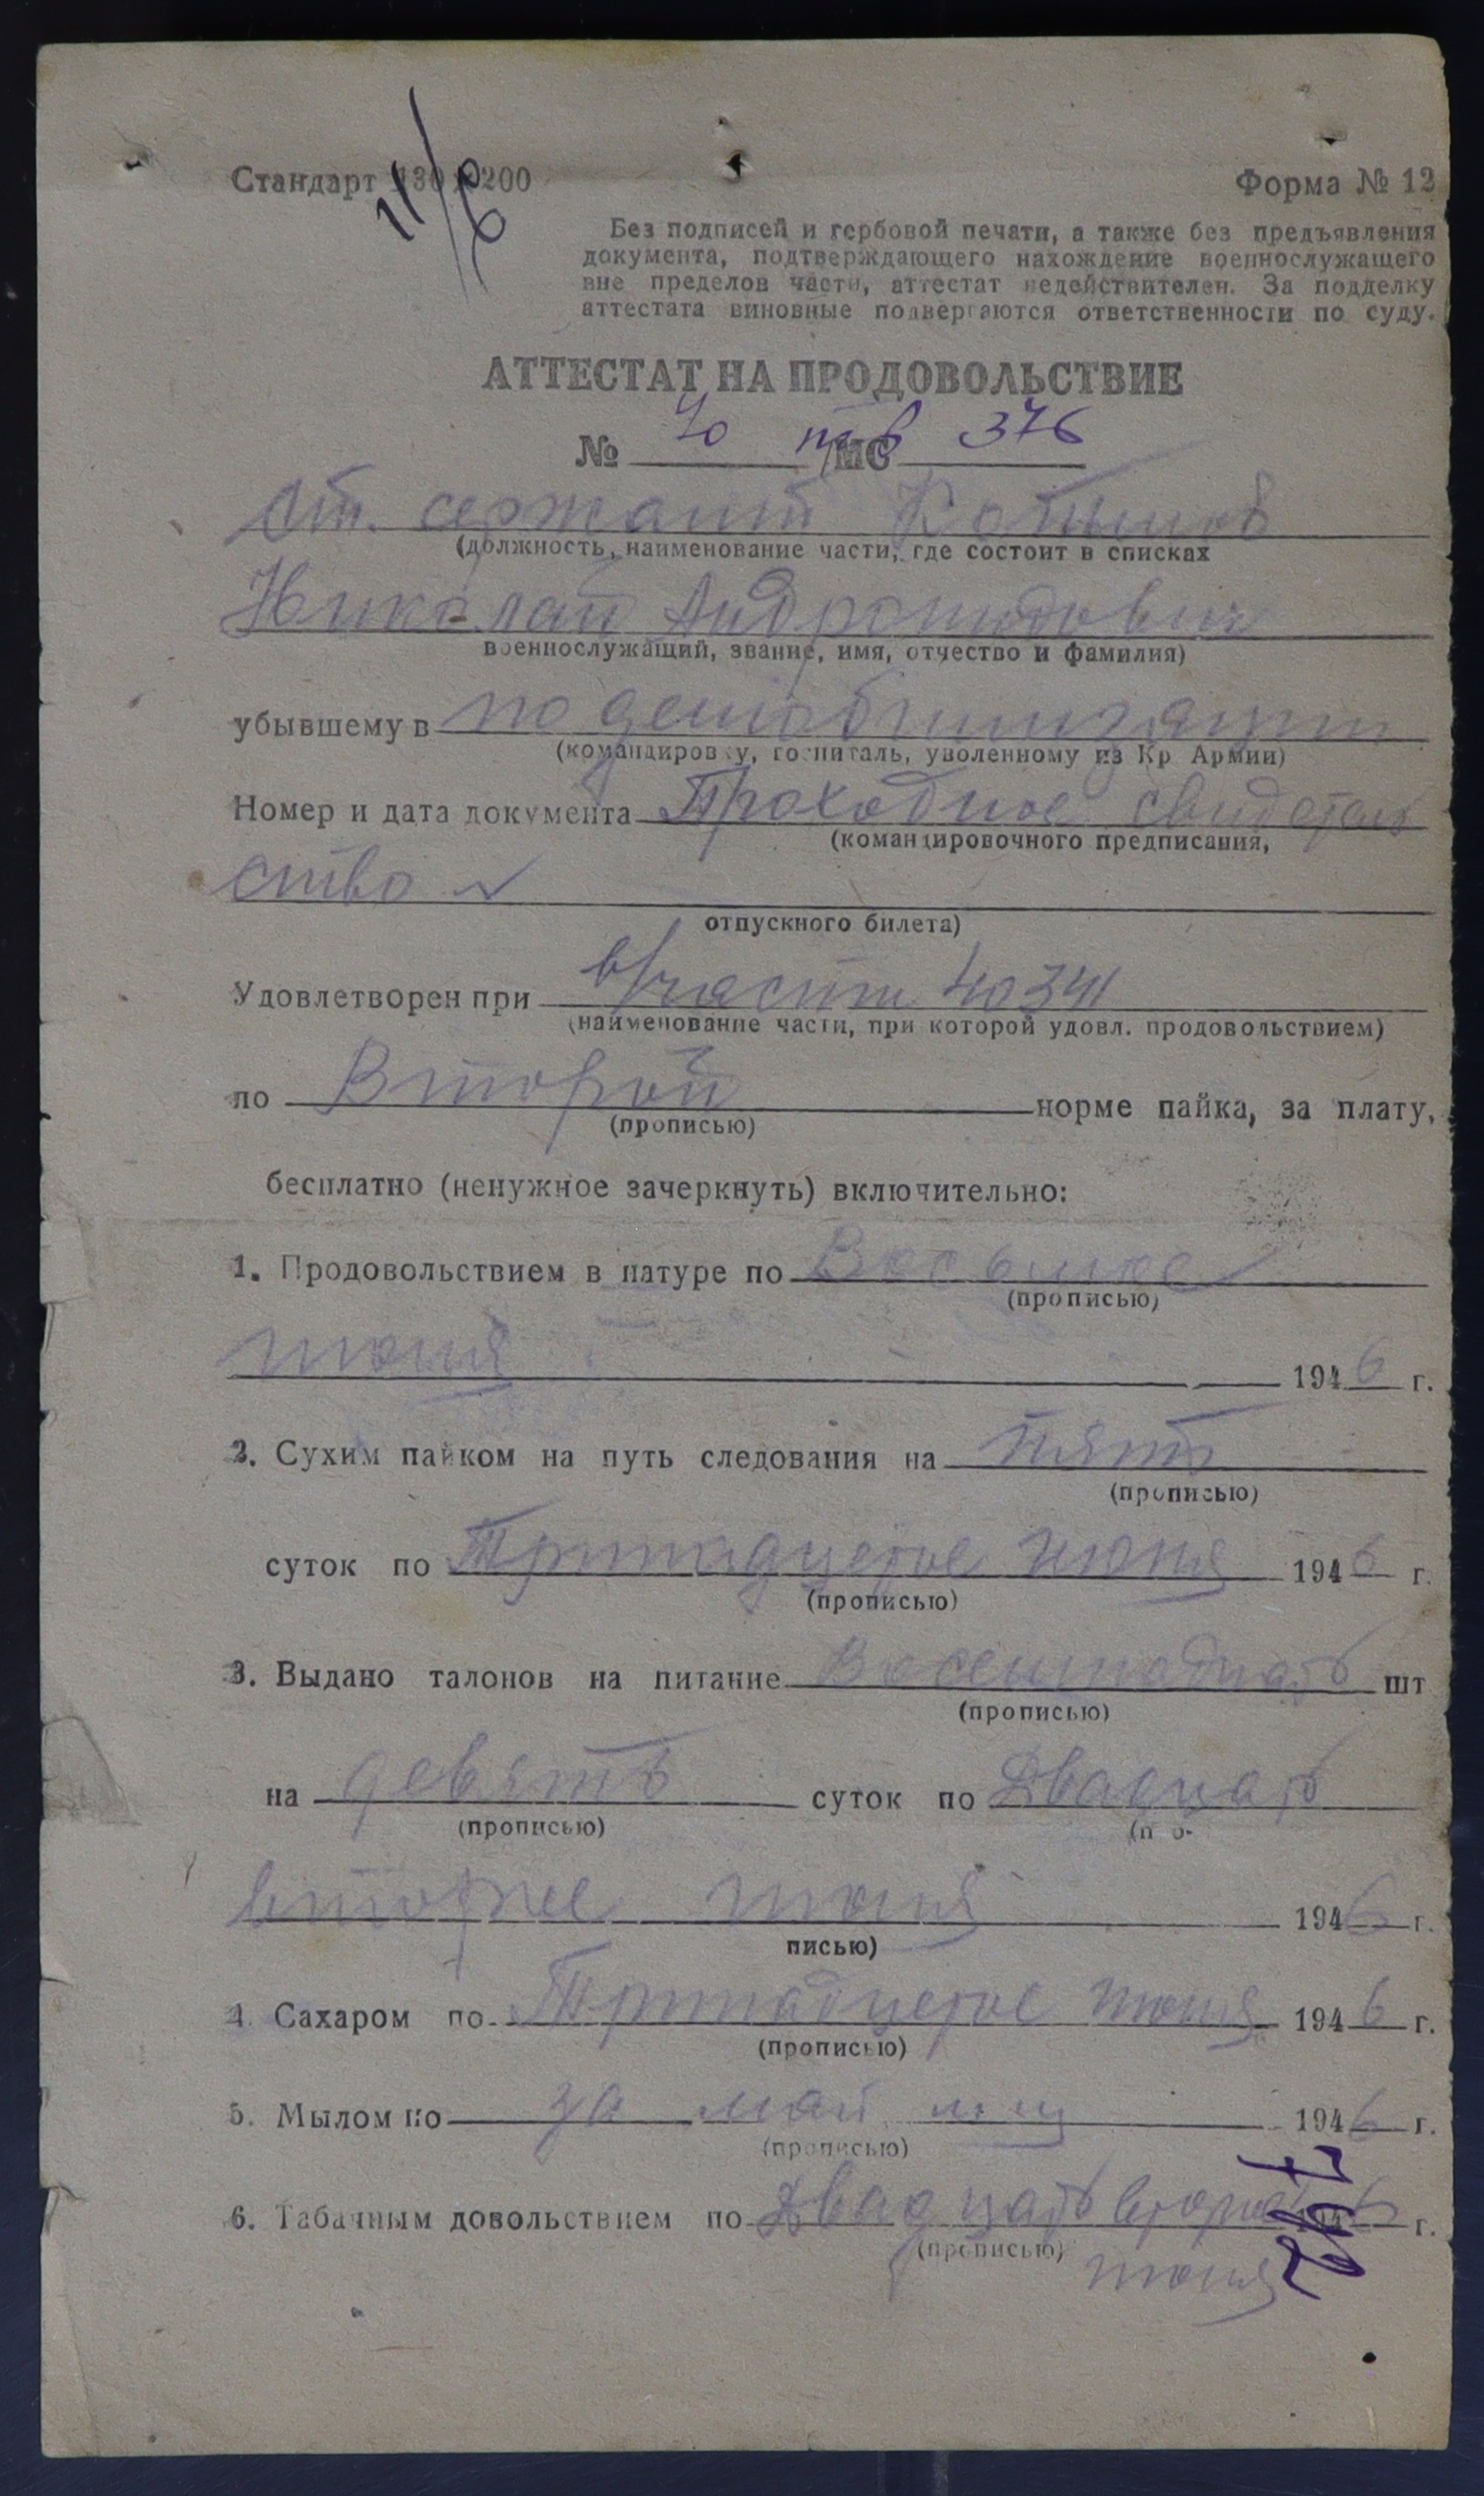 11/6
Стандарт 130×200
Форма № 12
Без подписей и гербовой печати, а также без предъявления
документа, подтверждающего нахождение военнослужащего
вне пределов части, аттестат недействителен. За подделку
аттестата виновные подвергаются ответственности по суду.
АТТЕСТАТ НА ПРОДОВОЛЬСТВИЕ
№ 70 МС 376
Ст. сержант
(должность, наименование части, где состоит в списках
Николай
военнослужащий, звание, имя, отчество и фамилия)
убывшему в по демобилизации
(командировку, госпиталь, уволенному из Кр Армии)
Номер и дата документа Проходное свидетель
(командировочного предписания,
ство
отпускного билета)
Удовлетворен при в/части 40341
(наименование части, при которой удовл. продовольствием)
по Второй норме пайка, за плату,
(прописью)
бесплатно (ненужное зачеркнуть) включительно:
1. Продовольствием в натуре по Восьмое
(прописью)
июня 1946 г.
2. Сухим пайком на путь следования на пять
(прописью)
суток по Тринадцатое июня 1946 г.
(прописью)
3. Выдано талонов на питание Восемнадцать шт
(прописью)
на девять суток по Двадцать
(прописью) (п о-
второе июня 1946 г.
писью)
4. Сахаром по Тринадцатое июня 1946 г.
(прописью)
5. Мылом по за май м-ц 1946 г.
(прописью)
6. Табачным довольствием по Двадцать второе 1946 г.
(прописью) июня